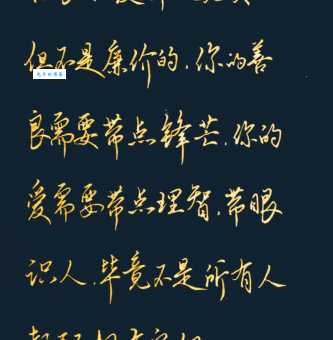 但不是廉价的,你的善
良需要带点锋芒,你的
爱需要带点理智,带眼
识人,毕竟不是所有人